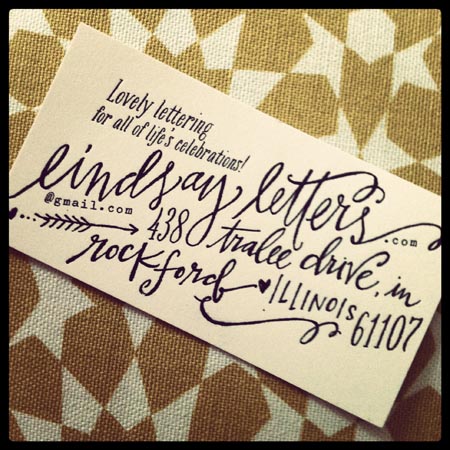 Lovely lettering
for all of life's celebrations!
lindsay letters
@gmail.com
.com
438 tralee drive, in
rockford ILLINOIS
61107